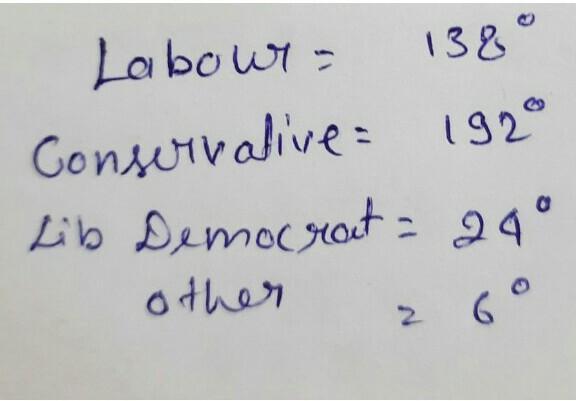 Labour = 138°
Conservative = 192°
Lib Democrat = 24°
other = 6°